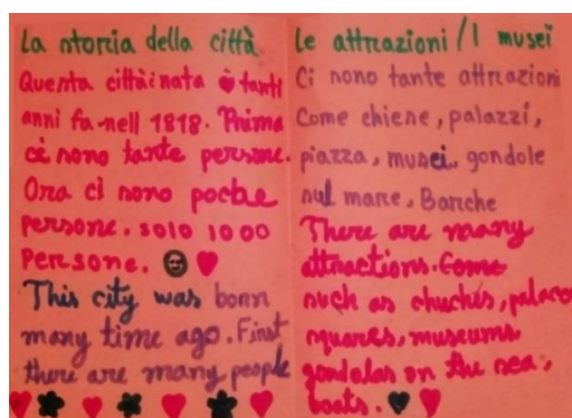 La storia della città
Questa cittàè nata è tanti
anni fa nell 1818. Prima
cè sono tante persone.
Ora ci sono poche
persone. solo 1000
persone.
This city was born
many time ago. First
there are many people
le attrazioni / I musei
Ci sono tante attrazioni
Come chiese, palazzi,
piazza, musei, gondole
sul mare, Barche
There are many
attractions. Come
such as chuches, palace
squares, museums,
gondolas on the sea,
boats.